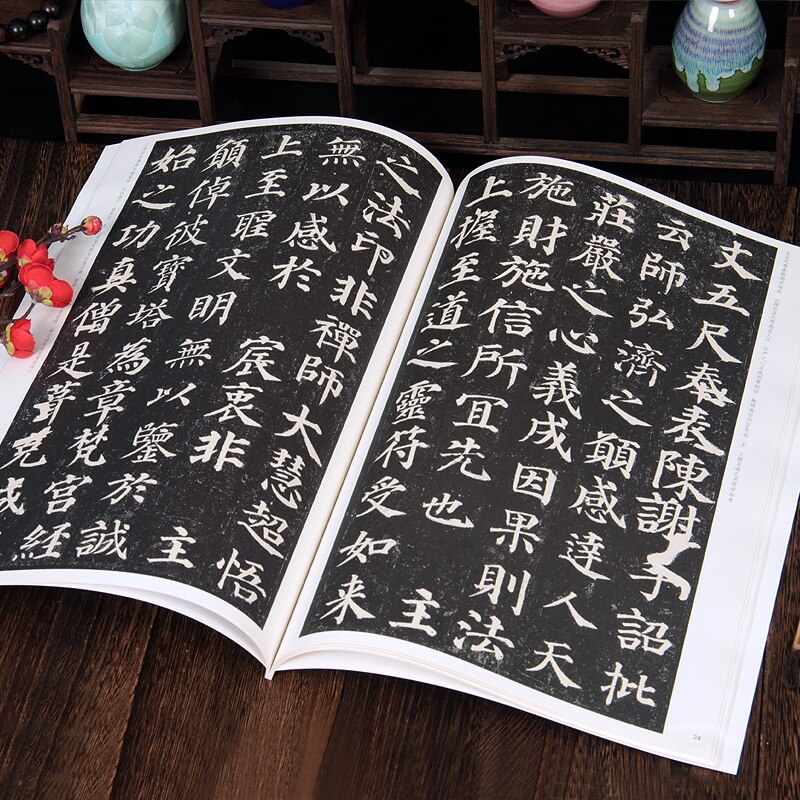 丈五尺奉表陳謝手詔批
云師弘濟之願感達人天
莊嚴之心義成因果則法
施財施信所冝先也主
上握至道之靈符受如來
之法印非禪師大慧超悟
無以感於宸衷非主
上至聖文明無以鑒於誠
願倬彼寶塔為章梵宮經
始之功真僧是葺克成
24